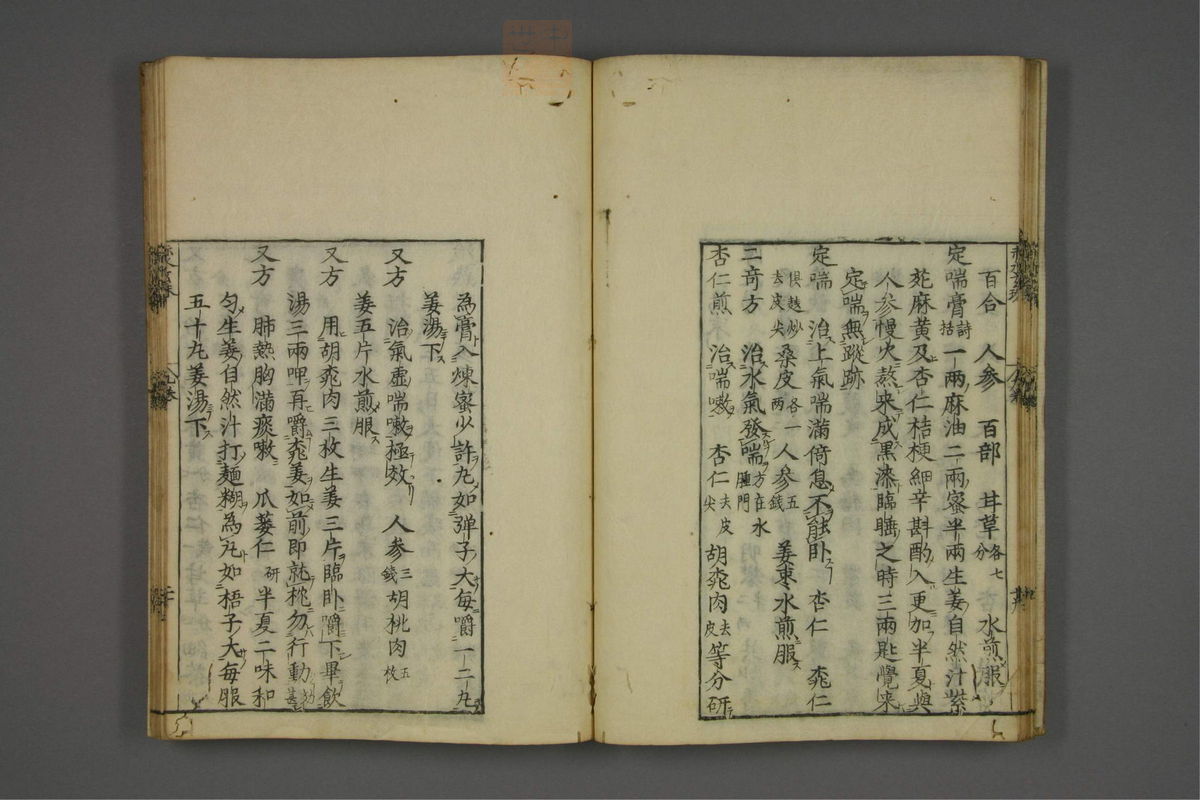 百合 人参 百部 甘草各七分 水煎服
定喘膏 詩括 一兩麻油二兩蜜半兩生姜自然汁紫
菀麻黄及杏仁桔梗細辛斟酌入更加半夏與
人参慢火熬来成黒漆臨睡之時三兩匙覺来
定喘無蹤跡
定喘 治上氣喘滿倚息不能卧 杏仁 桃仁
俱麩炒去皮尖 桑皮各一兩 人参五錢 姜枣水煎服
二奇方 治水氣發喘方在水腫門
杏仁煎 治喘嗽 杏仁去皮尖 胡桃肉去皮 等分研
為膏入煉蜜少許丸如弾子大毎嚼一二丸
姜湯下
又方 治氣虚喘嗽極效 人参三錢 胡桃肉五枚
姜五片水煎服
又方 用胡桃肉三枚生姜三片臨卧嚼下畢飲
湯三兩呷再嚼桃姜如前即就枕勿行動
又方 肺熱胸滿痰嗽 瓜蔞仁研 半夏二味和
匀生姜自然汁打麺糊為丸如梧子大毎服
五十丸姜湯下